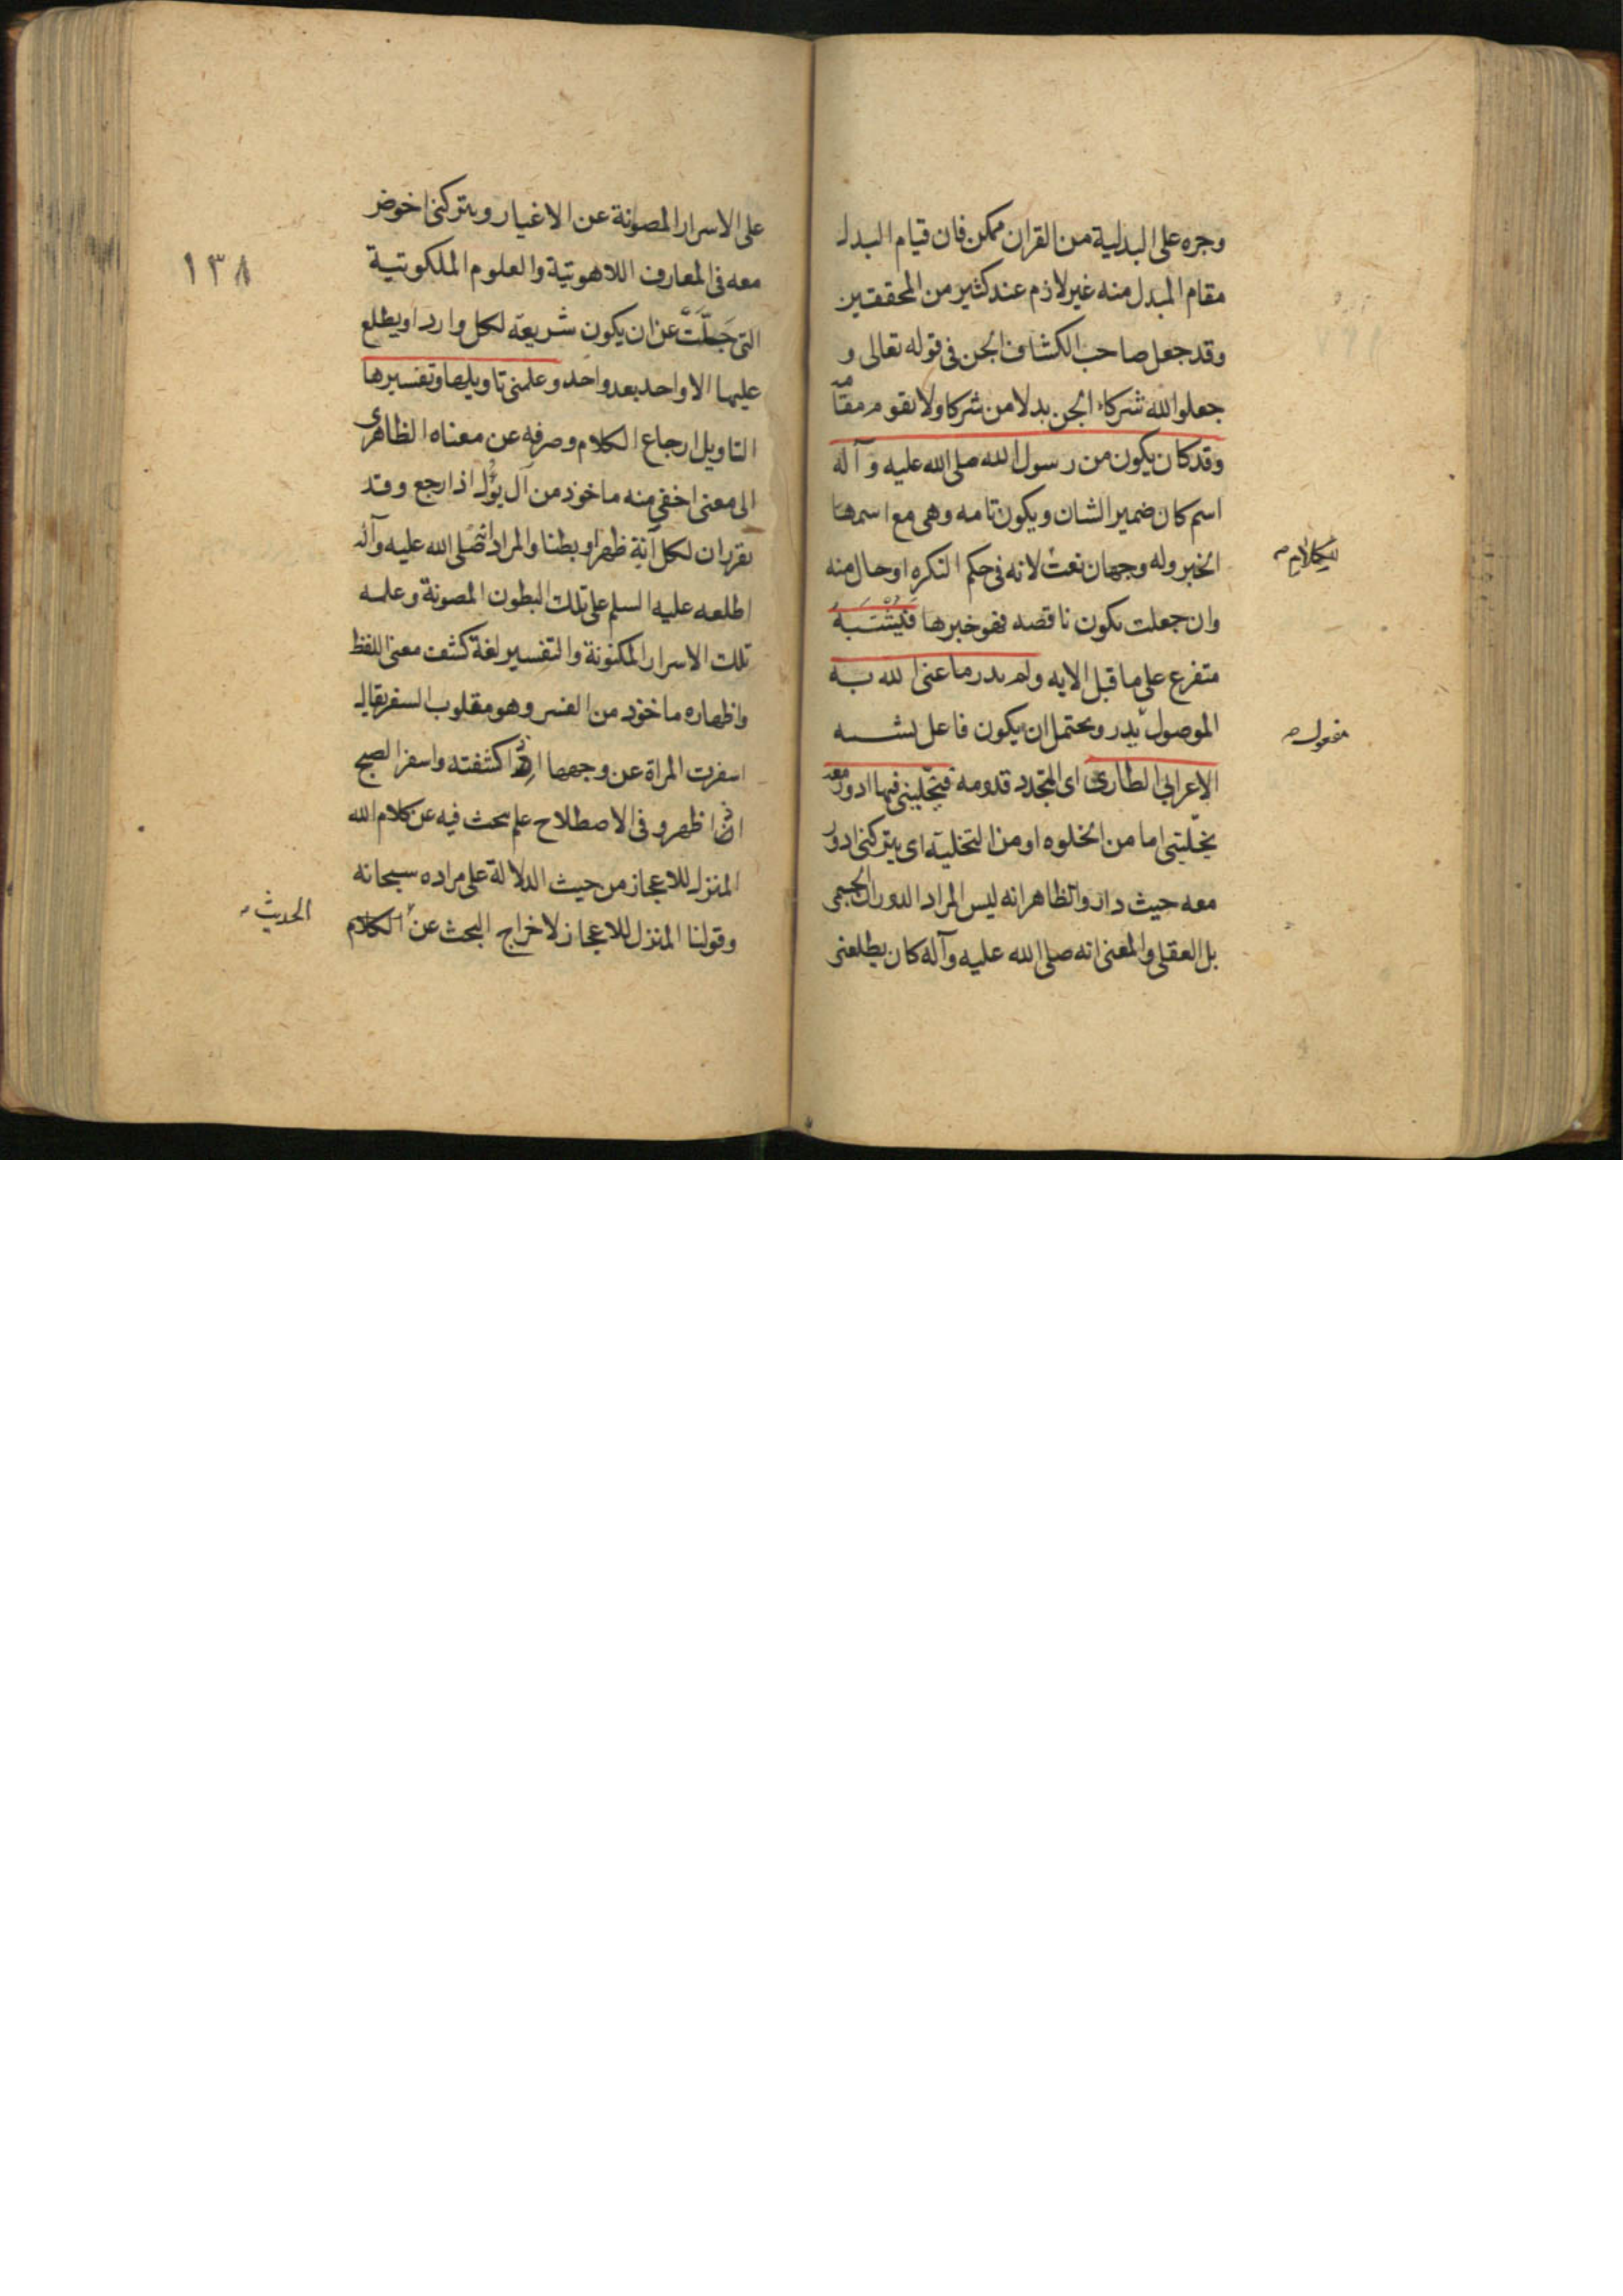 وجره على البدلية من القران ممكن فان قيام البدل
مقام المبدل منه غير لازم عند كثير من المحققين
وقد جعل صاحب الكشاف الجن في قوله تعالى و
جعلوا لله شركاء الجن بدلا من شركا ولا يقوم مقامه
وقد كان يكون من رسول الله صلى الله عليه وآله
اسم كان ضمير الشان ويكون تامه وهى مع اسمها
الخبر وله وجهان نعت لانه في حكم النكره او حال منه
للكلام
وان جعلت يكون ناقصه فهو خبرها فَيُشْتَبَهُ
متفرع على ما قبل الايه ولم يدر ما عنى الله به
الموصول يدر ويحتمل ان يكون فاعل يشتبه
مفعول
الاعرابي الطارئ اى المتجدد قدومه فيخلّينى فيها ادور معه
يخلّينى اما من الخلوه او من التخلية اى يتركنى ادور
معه حيث دار والظاهر انه ليس المراد الدوران الجسمى
بل العقلى والمعنى انه صلى الله عليه وآله كان يطلعنى
على الاسرار المصونة عن الاغيار ويتركنى اخوض
معه في المعارف اللاهوتية والعلوم الملكوتية
١٣٨
التى جَلَّتْ عن ان يكون شريعة لكل وارد او يطلع
عليها الا واحد بعد واحد وعلمنى تاويلها وتفسيرها
التاويل ارجاع الكلام وصرفه عن معناه الظاهرى
الى معنى اخفى منه ماخوذ من آل يؤل اذا رجع وقد
تقرر ان لكل آية ظهرا وبطنا والمراد انه صلى الله عليه وآله
اطلعه عليه السلم على تلك البطون المصونة وعلمه
تلك الاسرار المكنونة والتفسير لغة كشف معنى اللفظ
واظهاره ماخوذ من الفسر وهو مقلوب السفر يقال
اسفرت المراة عن وجهها اذا كشفته واسفر الصبح
اذا ظهر وفى الاصطلاح علم يبحث فيه عن كلام الله
المنزل للاعجاز من حيث الدلالة على مراده سبحانه
وقولنا المنزل للاعجاز لاخراج البحث عن الكلام
الحديث